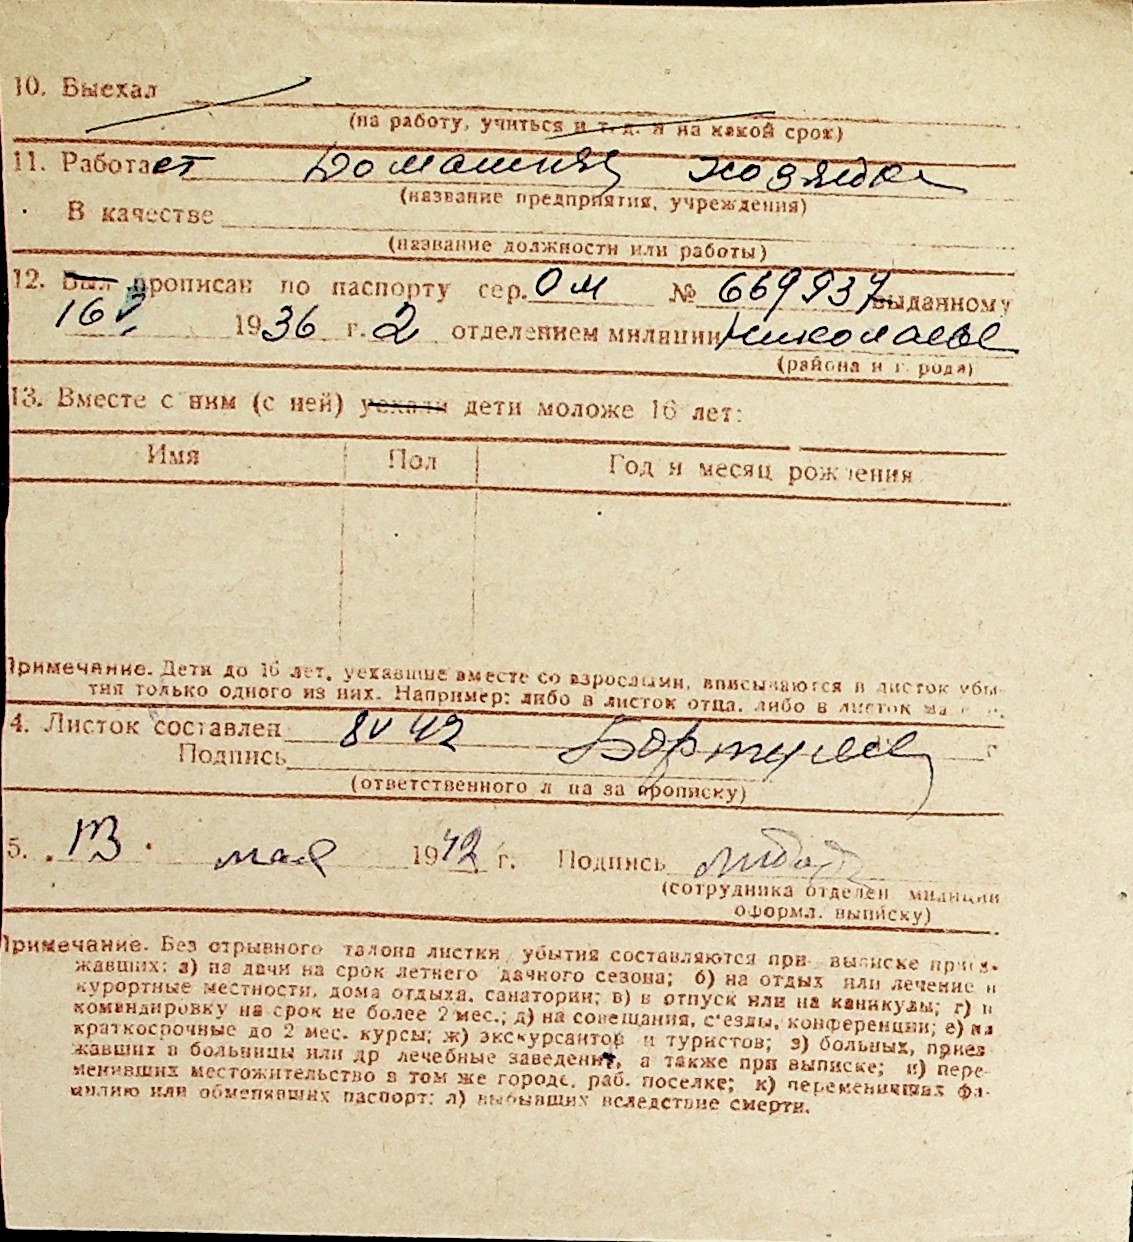 10. Выехал
(на работу, учиться и т. д. и на какой срок)
11. Работает Домашняя хозяйка
(название предприятия, учреждения)
В качестве
(название должности или работы)
12. Был прописан по паспорту сер. ОМ № 669937 выданному
16 V 1936 г. 2 отделением милиции Николаеве
(района и г рода)
13. Вместе с ним (с ней) уехали дети моложе 16 лет:
Имя Пол Год и месяц рождения
Примечание. Дети до 16 лет, уехавшие вместе со взрослыми, вписываются в листок убы-
тия только одного из них. Например: либо в листок отца, либо в листок
4. Листок составлен 8 V 42 г
Подпись
(ответственного л ца за прописку)
5. 13 мая 1942 г. Подпись
(сотрудника отделен милиции
оформл. выписку)
Примечание. Без отрывного талона листки убытия составляются при выписке приез-
жавших: а) на дачи на срок летнего дачного сезона; б) на отдых или лечение в
курортные местности, дома отдыха, санатории; в) в отпуск или на каникулы; г) в
командировку на срок не более 2 мес.; д) на совещания, с'езды, конференции; е) на
краткосрочные до 2 мес. курсы; ж) экскурсантов и туристов; з) больных, приез
жавших в больницы или др лечебные заведения, а также при выписке; и) пере-
менивших местожительство в том же городе, раб. поселке; к) переменивших фа-
милию или обменявших паспорт; л) выбывших вследствие смерти.